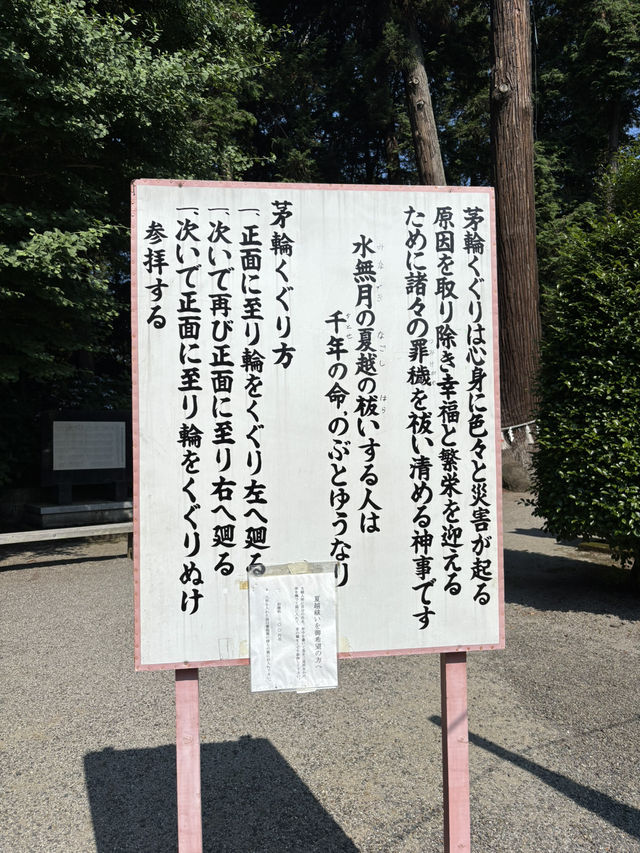 茅輪くぐりは心身に色々と災害が起る
原因を取り除き幸福と繁栄を迎える
ために諸々の罪穢を祓い清める神事です
水無月の夏越の祓いする人は
千年の命のぶとゆうなり
茅輪くぐり方
一、正面に至り輪をくぐり左へ廻る
一、次いで再び正面に至り右へ廻る
一、次いで正面に至り輪をくぐりぬけ
参拝する
夏越祓いを御希望の方へ